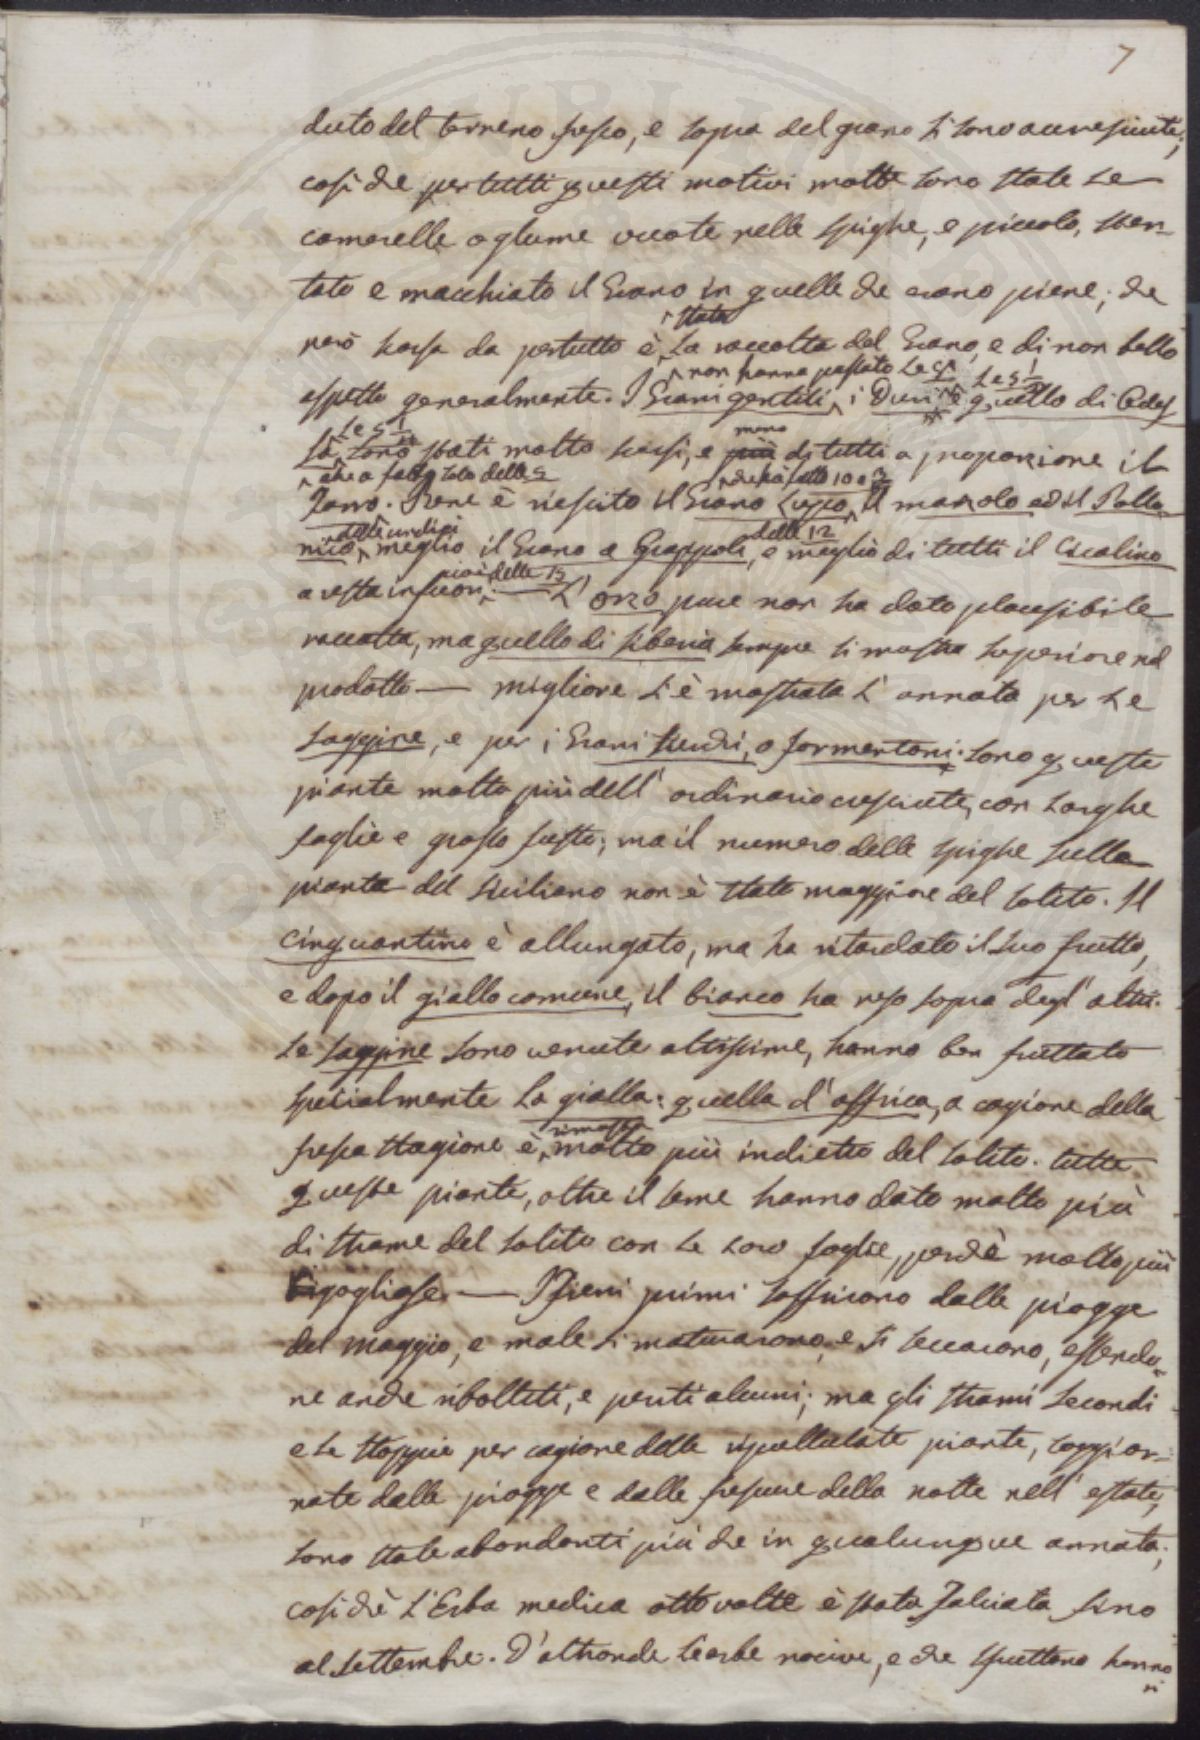 7
duto del terreno fresco, e sopra del grano si sono accresciute;
così che per tutti questi motivi molte sono state le
camerelle o glume vuote nelle spighe, e piccolo, sten-
tato e macchiato il Grano in quelle che erano piene; che
però scarsa da pertutto è la raccolta del Grano, e di non bello
stata
aspetto generalmente. I Grani gentili, i Duri e quello di Odes
non hanno passato le 5 le 5
sa sono stati molto scarsi, e più di tutti a proporzione il
le 5 meno
Farro. Bene è riescito il Grano Lupo, il marzolo ed il Polla
che a fatto solo delle 5 che ha fatto 10 a
nico, meglio il Grano a Grappoli, e meglio di tutti il Cicalino
delle undici delle 12
a resta in fuori. — L'orzo pure non ha dato plausibile
più delle 13
raccolta, ma quello di Siberia sempre si mostra superiore nel
prodotto — migliore s'è mostrata l'annata per le
saggine, e per i Grani Siculi, o formentoni. sono queste
piante molto più dell'ordinario cresciute, con larghe
foglie e grosso fusto; ma il numero delle spighe sulla
pianta del siciliano non è stato maggiore del solito. Il
cinquantino è allungato, ma ha ritardato il suo frutto,
e dopo il giallo comune, il bianco ha reso sopra degl'altri.
Le saggine sono venute altissime, hanno ben fruttato
specialmente la gialla: quella d'affrica, a cagione della
fresca stagione è molto più indietro del solito. tutte
rimasta
queste piante, oltre il seme hanno dato molto più
di strame del solito con le loro foglie, perchè molto più
rigogliose. — I fieni primi soffrirono dalle piogge
del maggio, e male si maturarono, e si seccarono, essendo-
ne anche ribolliti, e periti alcuni; ma gli strami secondi
e le stoppie per cagione delle ripullulate piante, soggior-
nate dalle piogge e dalle frescure della notte nell'estate,
sono state abondanti più che in qualunque annata;
così chè l'Erba medica otto volte è stata falciata sino
al settembre. D'altronde le erbe nocive, e che spettano hanno
ri